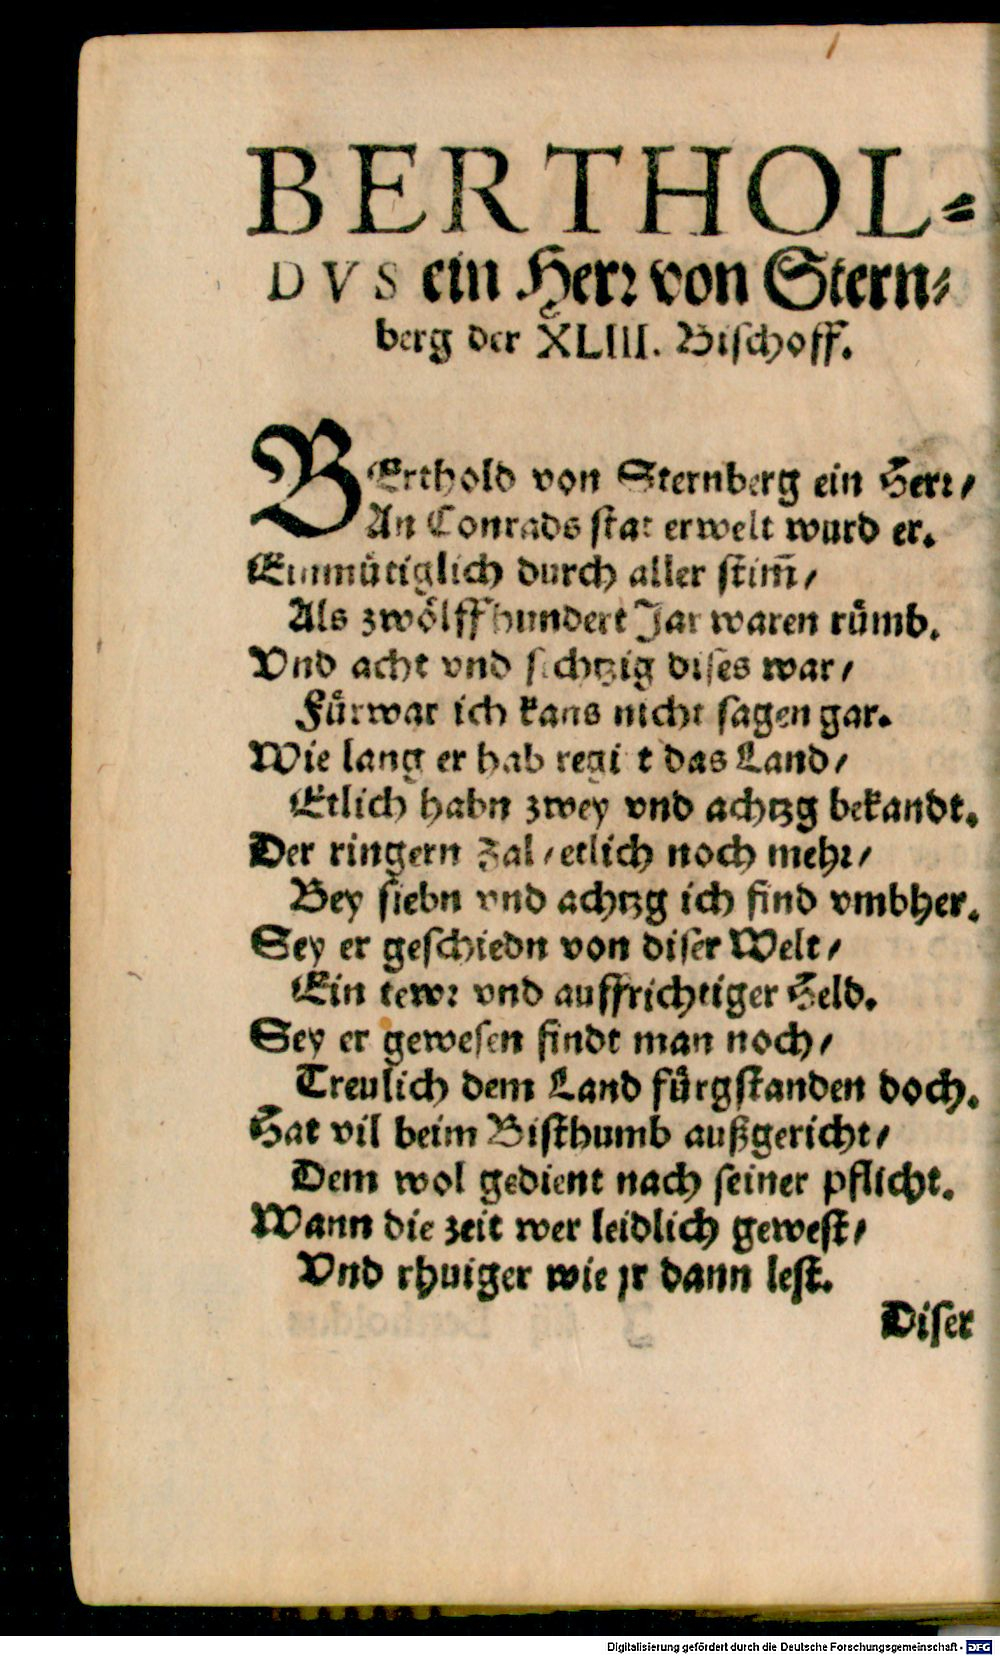 BERTHOL-
DVS ein Herr von Stern-
berg der XLIII. Bischoff.
BErthold von Sternberg ein Herr/
An Conrads stat erwelt wurd er.
Einmütiglich durch aller stim̄/
Als zwölffhundert Jar waren rümb.
Vnd acht vnd sechtzig dises war/
Fürwar ich kans nicht sagen gar.
Wie lang er hab regirt das Land/
Etlich habn zwey vnd achtzg bekandt.
Der ringern Zal/etlich noch mehr/
Bey siebn vnd achtzg ich find vmbher.
Sey er geschiedn von diser Welt/
Ein tewr vnd auffrichtiger Held.
Sey er gewesen findt man noch/
Treulich dem Land fürgstanden doch.
Hat vil beim Bisthumb außgericht/
Dem wol gedient nach seiner pflicht.
Wann die zeit wer leidlich gewest/
Vnd rhuiger wie jr dann lest.
Diser
Digitalisierung gefördert durch die Deutsche Forschungsgemeinschaft - DFG